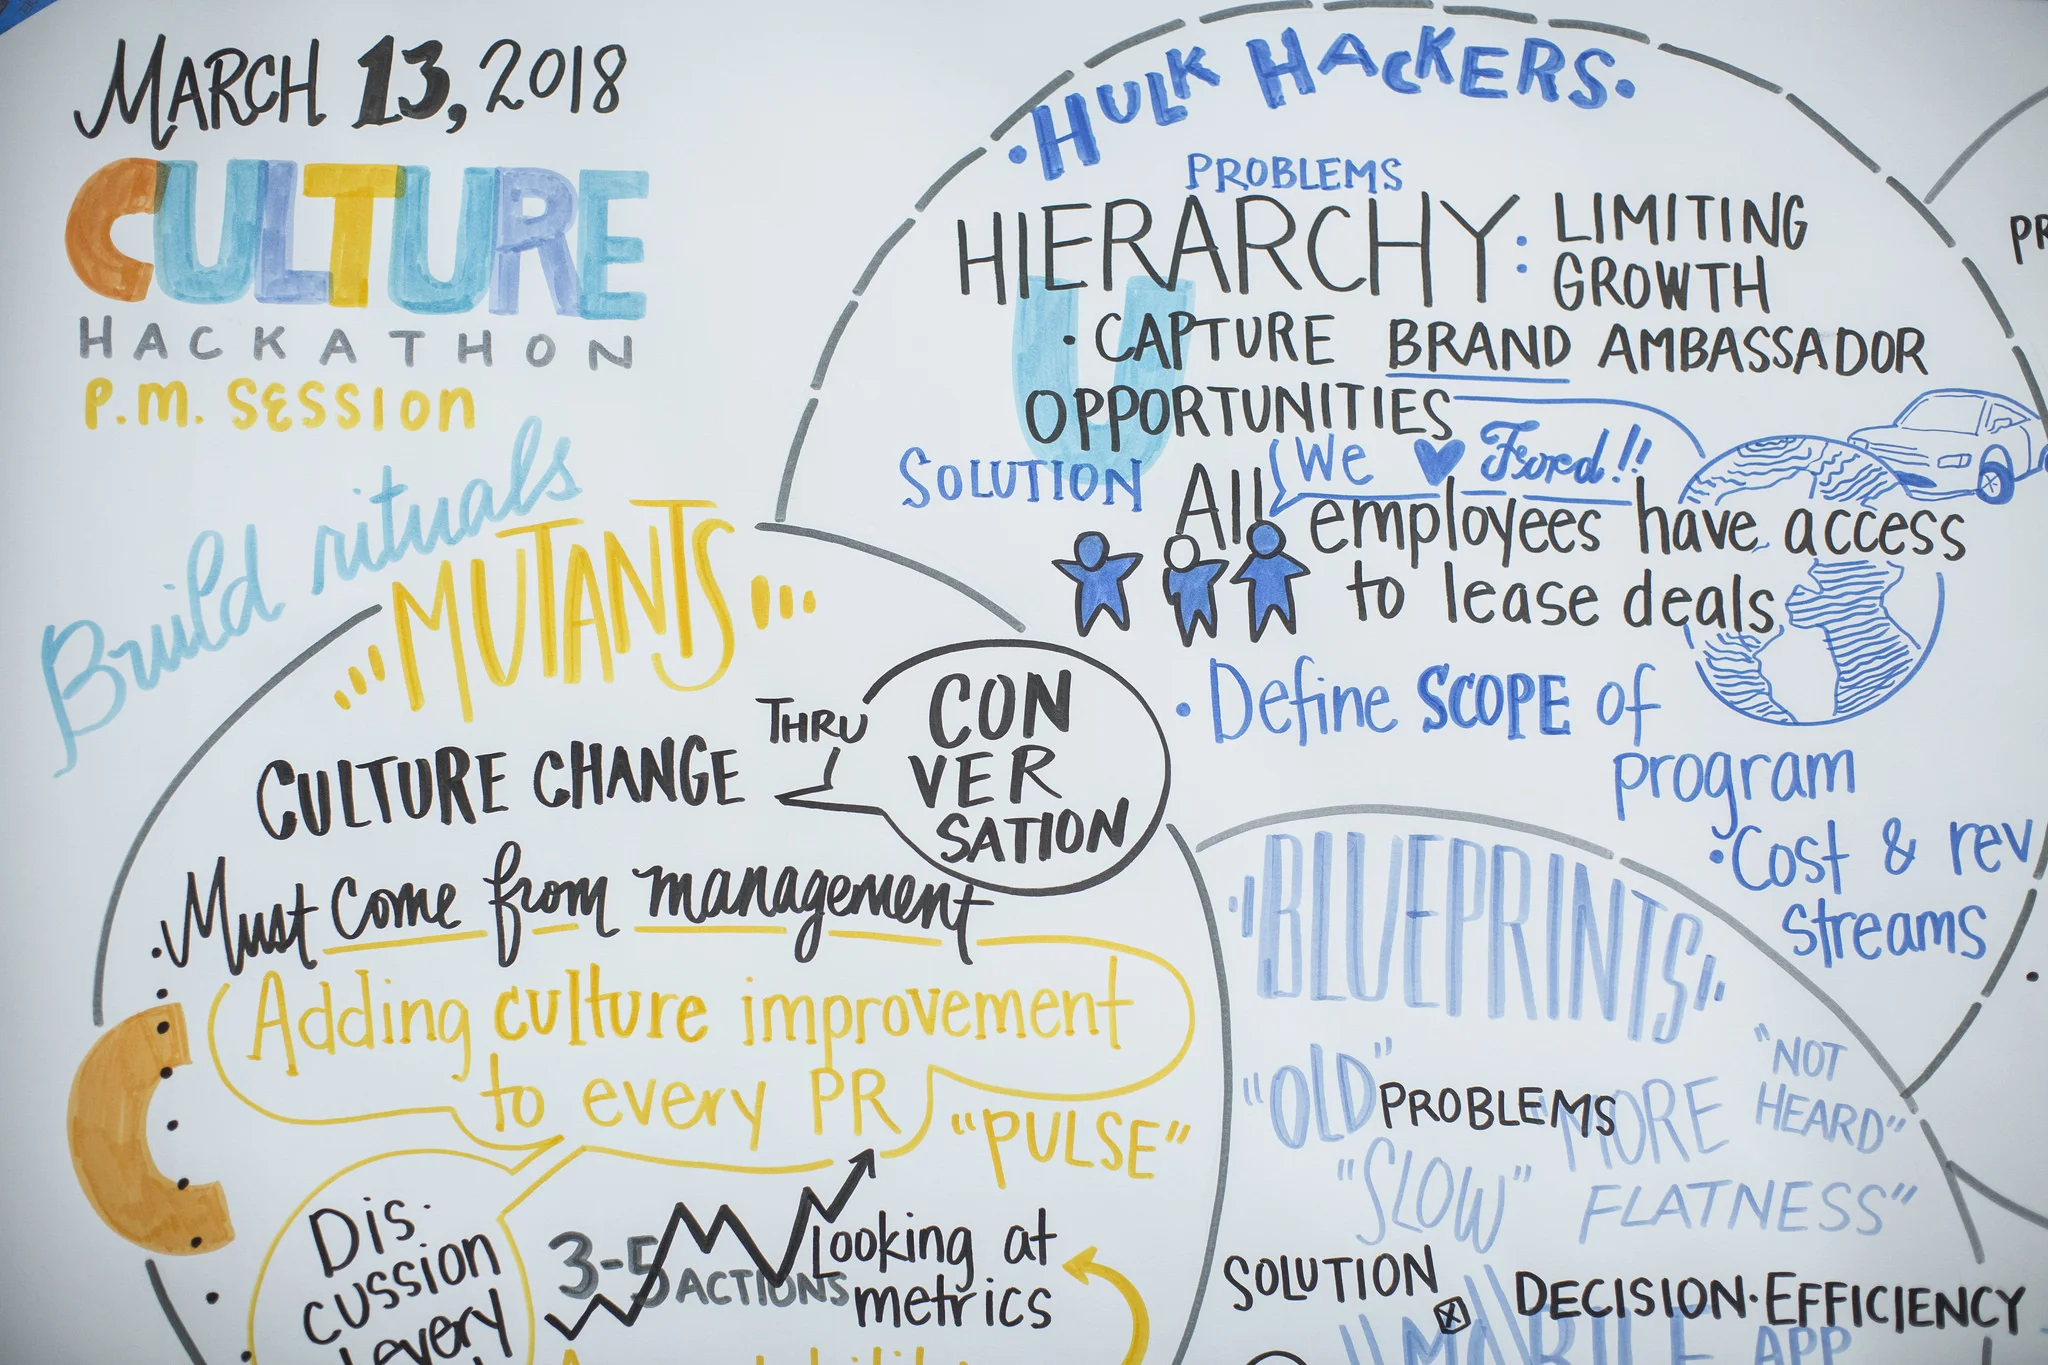 MARCH 13, 2018
CULTURE
HACKATHON
P.M. SESSION
Build rituals
MUTANTS
CULTURE CHANGE
THRU
CON
VER
SATION
• Must come from management
Adding culture improvement
to every PR
"PULSE"
Dis·
cussion
every
3-5 ACTIONS
Looking at
metrics
C
• HULK HACKERS •
PROBLEMS
HIERARCHY: LIMITING
GROWTH
U
• CAPTURE BRAND AMBASSADOR
OPPORTUNITIES
We ♥ Ford!!
SOLUTION
All employees have access
to lease deals
• Define SCOPE of
program
• Cost & rev
streams
BLUEPRINTS
PROBLEMS
"OLD"
"MORE
FLATNESS"
"NOT
HEARD"
"SLOW"
SOLUTION
DECISION·EFFICIENCY
APP
PR